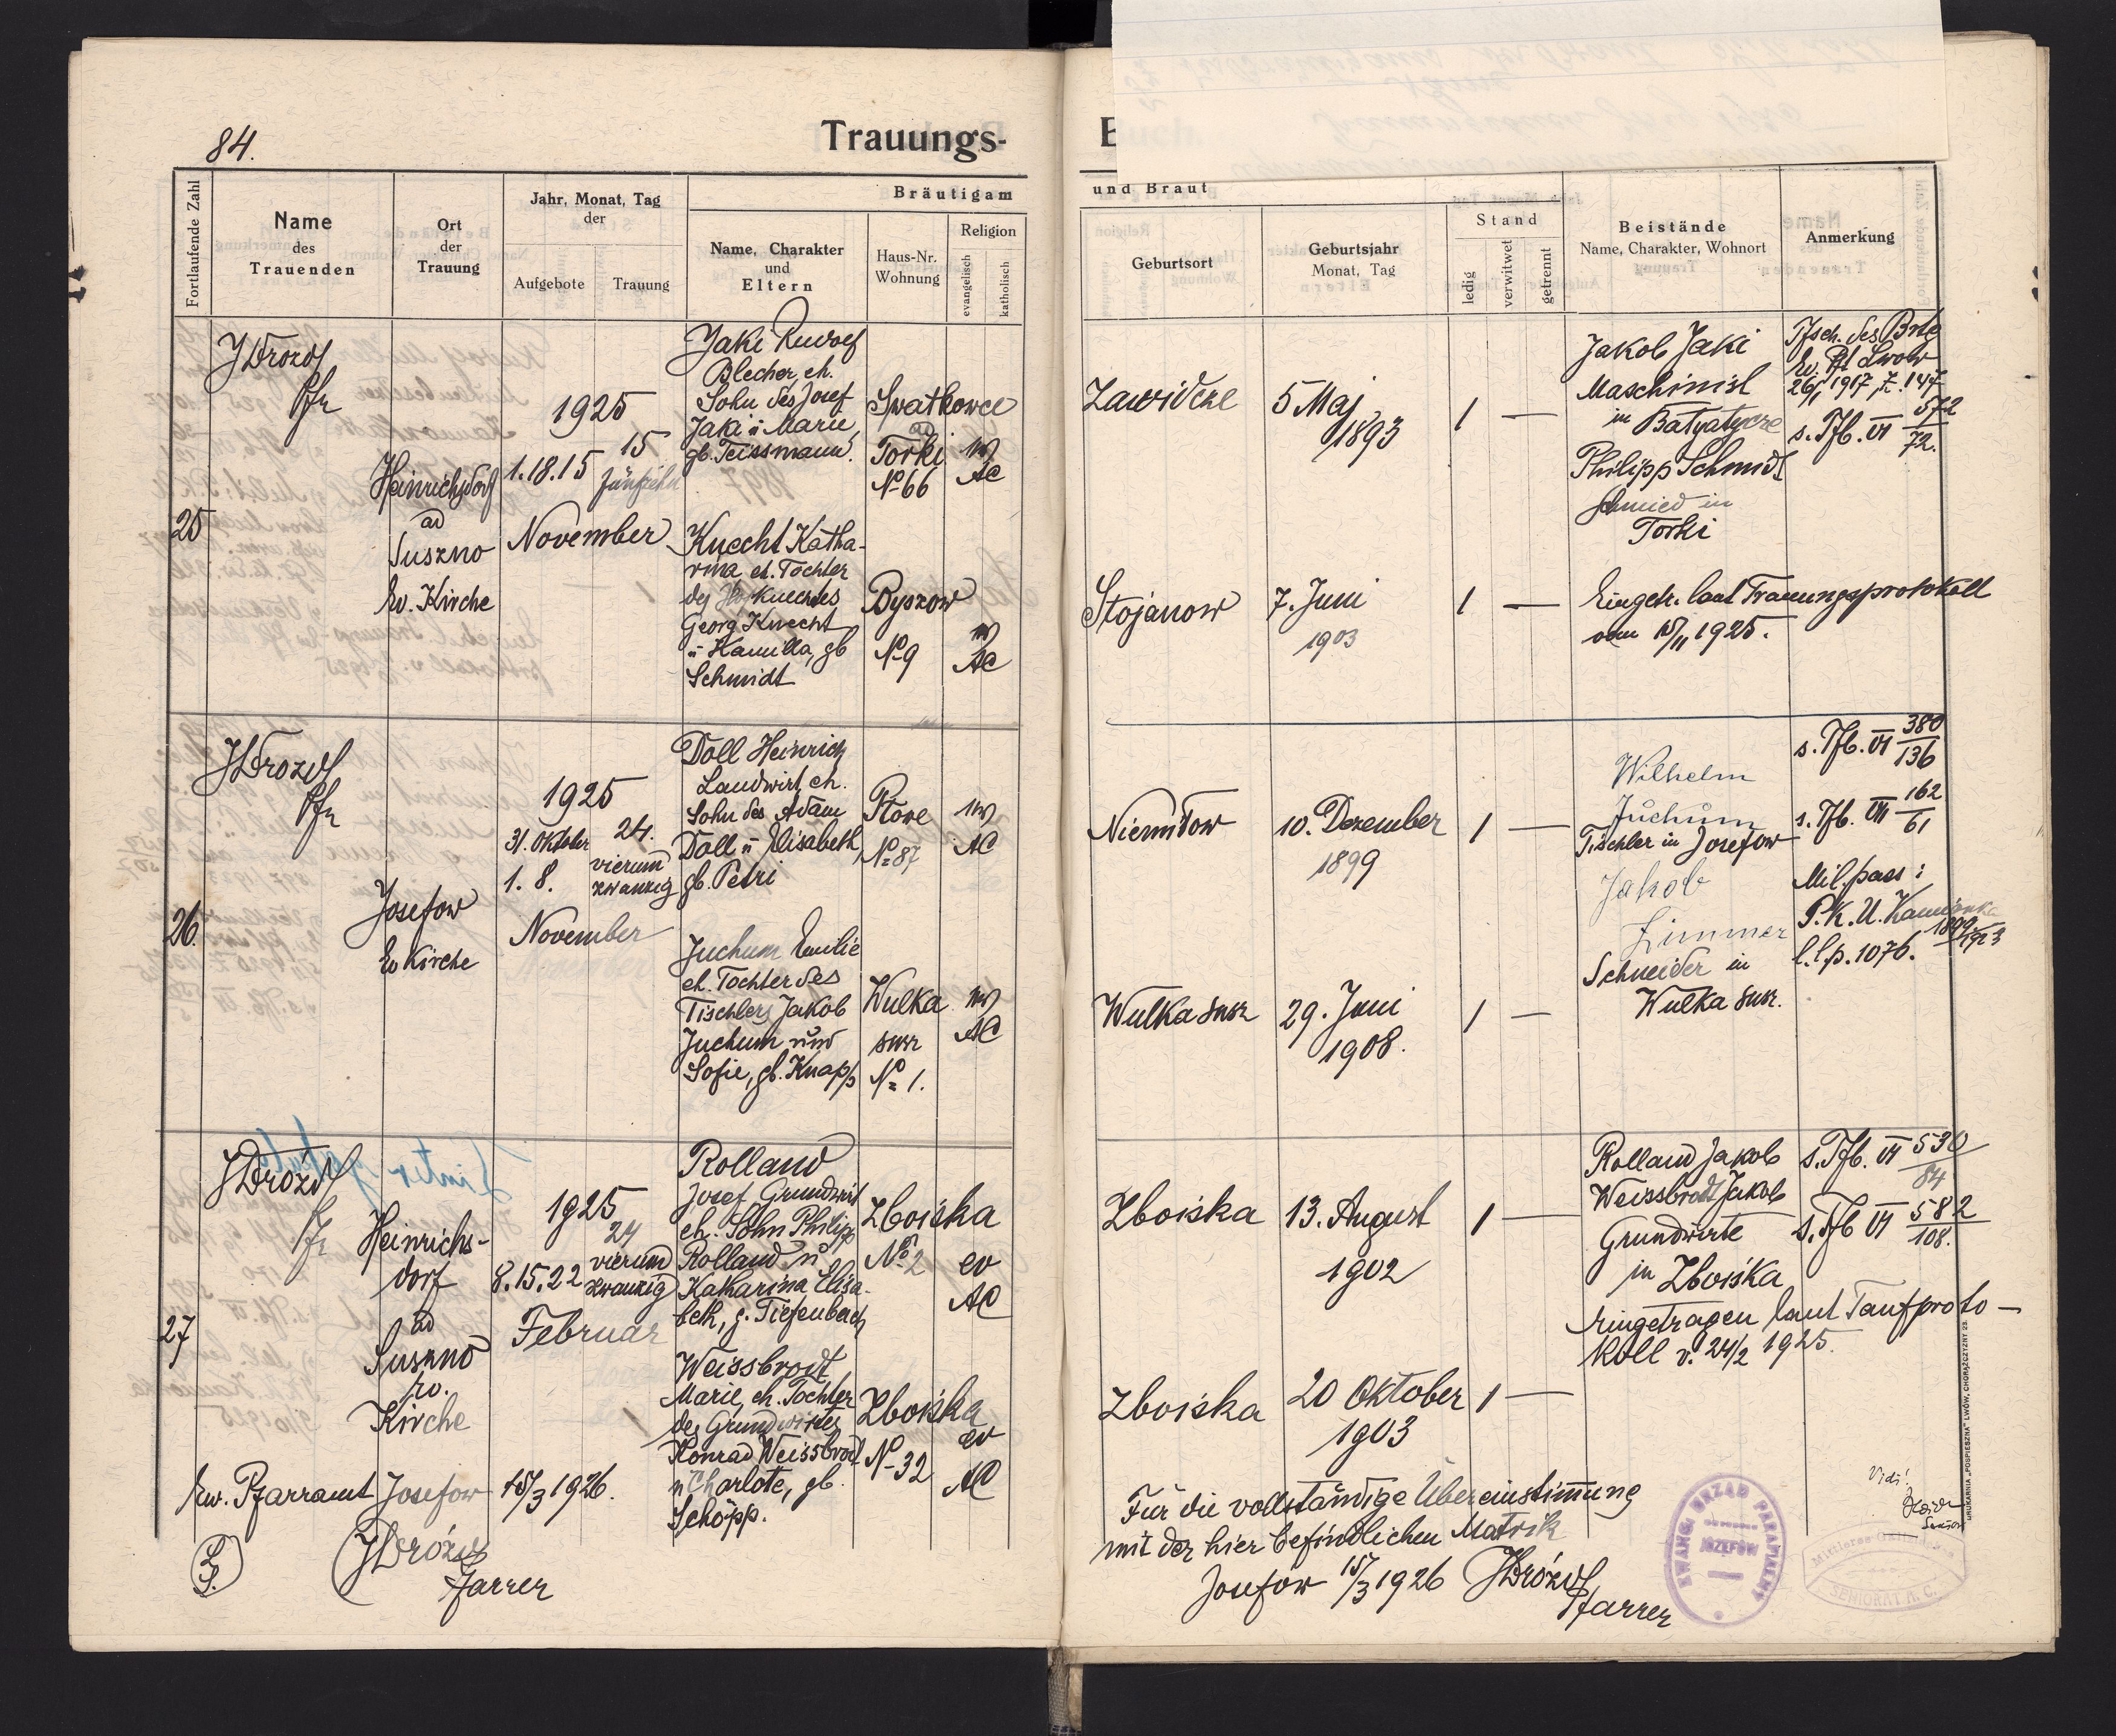 84.
Trauungs-
Fortlaufende Zahl
Name
des
Trauenden
Ort
der
Trauung
Jahr, Monat, Tag
der
Aufgebote
Trauung
Bräutigam
Name, Charakter
und
Eltern
Haus-Nr.
Wohnung
Religion
evangelisch
katholisch
und Braut
Geburtsort
Geburtsjahr
Monat, Tag
Stand
ledig
verwitwet
getrennt
Beistände
Name, Charakter, Wohnort
Anmerkung
25
JDrozd
Pfr
Heinrichsdorf
ad
Suszno
Ev. Kirche
1925
15
1.18.15
fünfzehn
November
Jaki Rudolf
Blecher, eh.
Sohn des Josef
Jaki u Marie,
gb. Teissmann.
Spatkowce
ad
Torki
No 66
ev
AC
Zawidcze
5 Maj
1893
1 —
Jakob Jaki
Maschinist
in Batyatycze
Philipp Schmidt
Schmied in
Torki
Ev. Pft Lwow
26/1 1917, Z. 147
s. Pfb. VI 572/72.
Knecht Katha-
rina eh. Tochter
des Hofknechtes
Georg Knecht
u Kamilla, gb
Schmidt
Byszow
No 9
ev
AC
Stojanow
7. Juni
1903
1 —
Eingetr. laut Trauungsprotokoll
vom 15/11 1925.
26.
JDrozd
Pfr
Josefow
Ev Kirche
1925
31. Oktober
24.
1. 8.
vierund
zwanzig
November
Doll Heinrich
Landwirt, eh.
Sohn des Adam
Doll u Elisabeth,
gb. Petri
No 87
ev
AC
Niemilow
10. Dezember
1899
1 —
Wilhelm
Juchum
Tischler in Josefow
Jakob
Zimmer
Schneider in
Wulka susz.
s. Pfb. VI 380/136
s. Pfb. VII 162/61
Mil. pass:
P.K.U. Kamionka
1899/1923
l.l.p. 1076.
Juchum Emilie
eh. Tochter des
Tischlers Jakob
Juchum und
Sofie, gb. Knapp
Wulka
susz
No 1.
ev
AC
Wulka susz
29. Juni
1908.
1 —
27
JDrózd
Pfr
Heinrichs-
dorf
ad
Suszno
ev.
Kirche
1925
24
8.15.22
vierund
zwanzig
Februar
Rolland
Josef, Grundwirt
eh. Sohn Philipp
Rolland u
Katharina Elisa-
beth, g. Tiefenbach
Zboiska
No 2
ev
AC
Zboiska
13. August
1902
1 —
Rolland Jakob
Weissbrodt Jakob
Grundwirte
in Zboiska
eingetragen laut Taufproto-
koll v. 24/2 1925.
s. Pfb. VI 530/84
s. Pfb VI 582/108.
Weissbrodt
Marie, eh. Tochter
des Grundwirtes
Konrad Weissbrodt
u Charlote, gb.
Schöpp.
Zboiska
No 32
ev
AC
Zboiska
20 Oktober
1903
1 —
Ew. Pfarramt Josefow 15/3 1926.
JDrózd
Pfarrer
Für die vollständige Übereinstimmung
mit der hier befindlichen Matrik
Josefow 15/3 1926 JDrózd
Pfarrer
EWANG. URZĄD PARAFIALNY
JÓZEFÓW
Vidi!
Senior
SENIORAT A. C.
DRUKARNIA „POSPIESZNA" LWÓW, CHORĄŻCZYZNY 23.